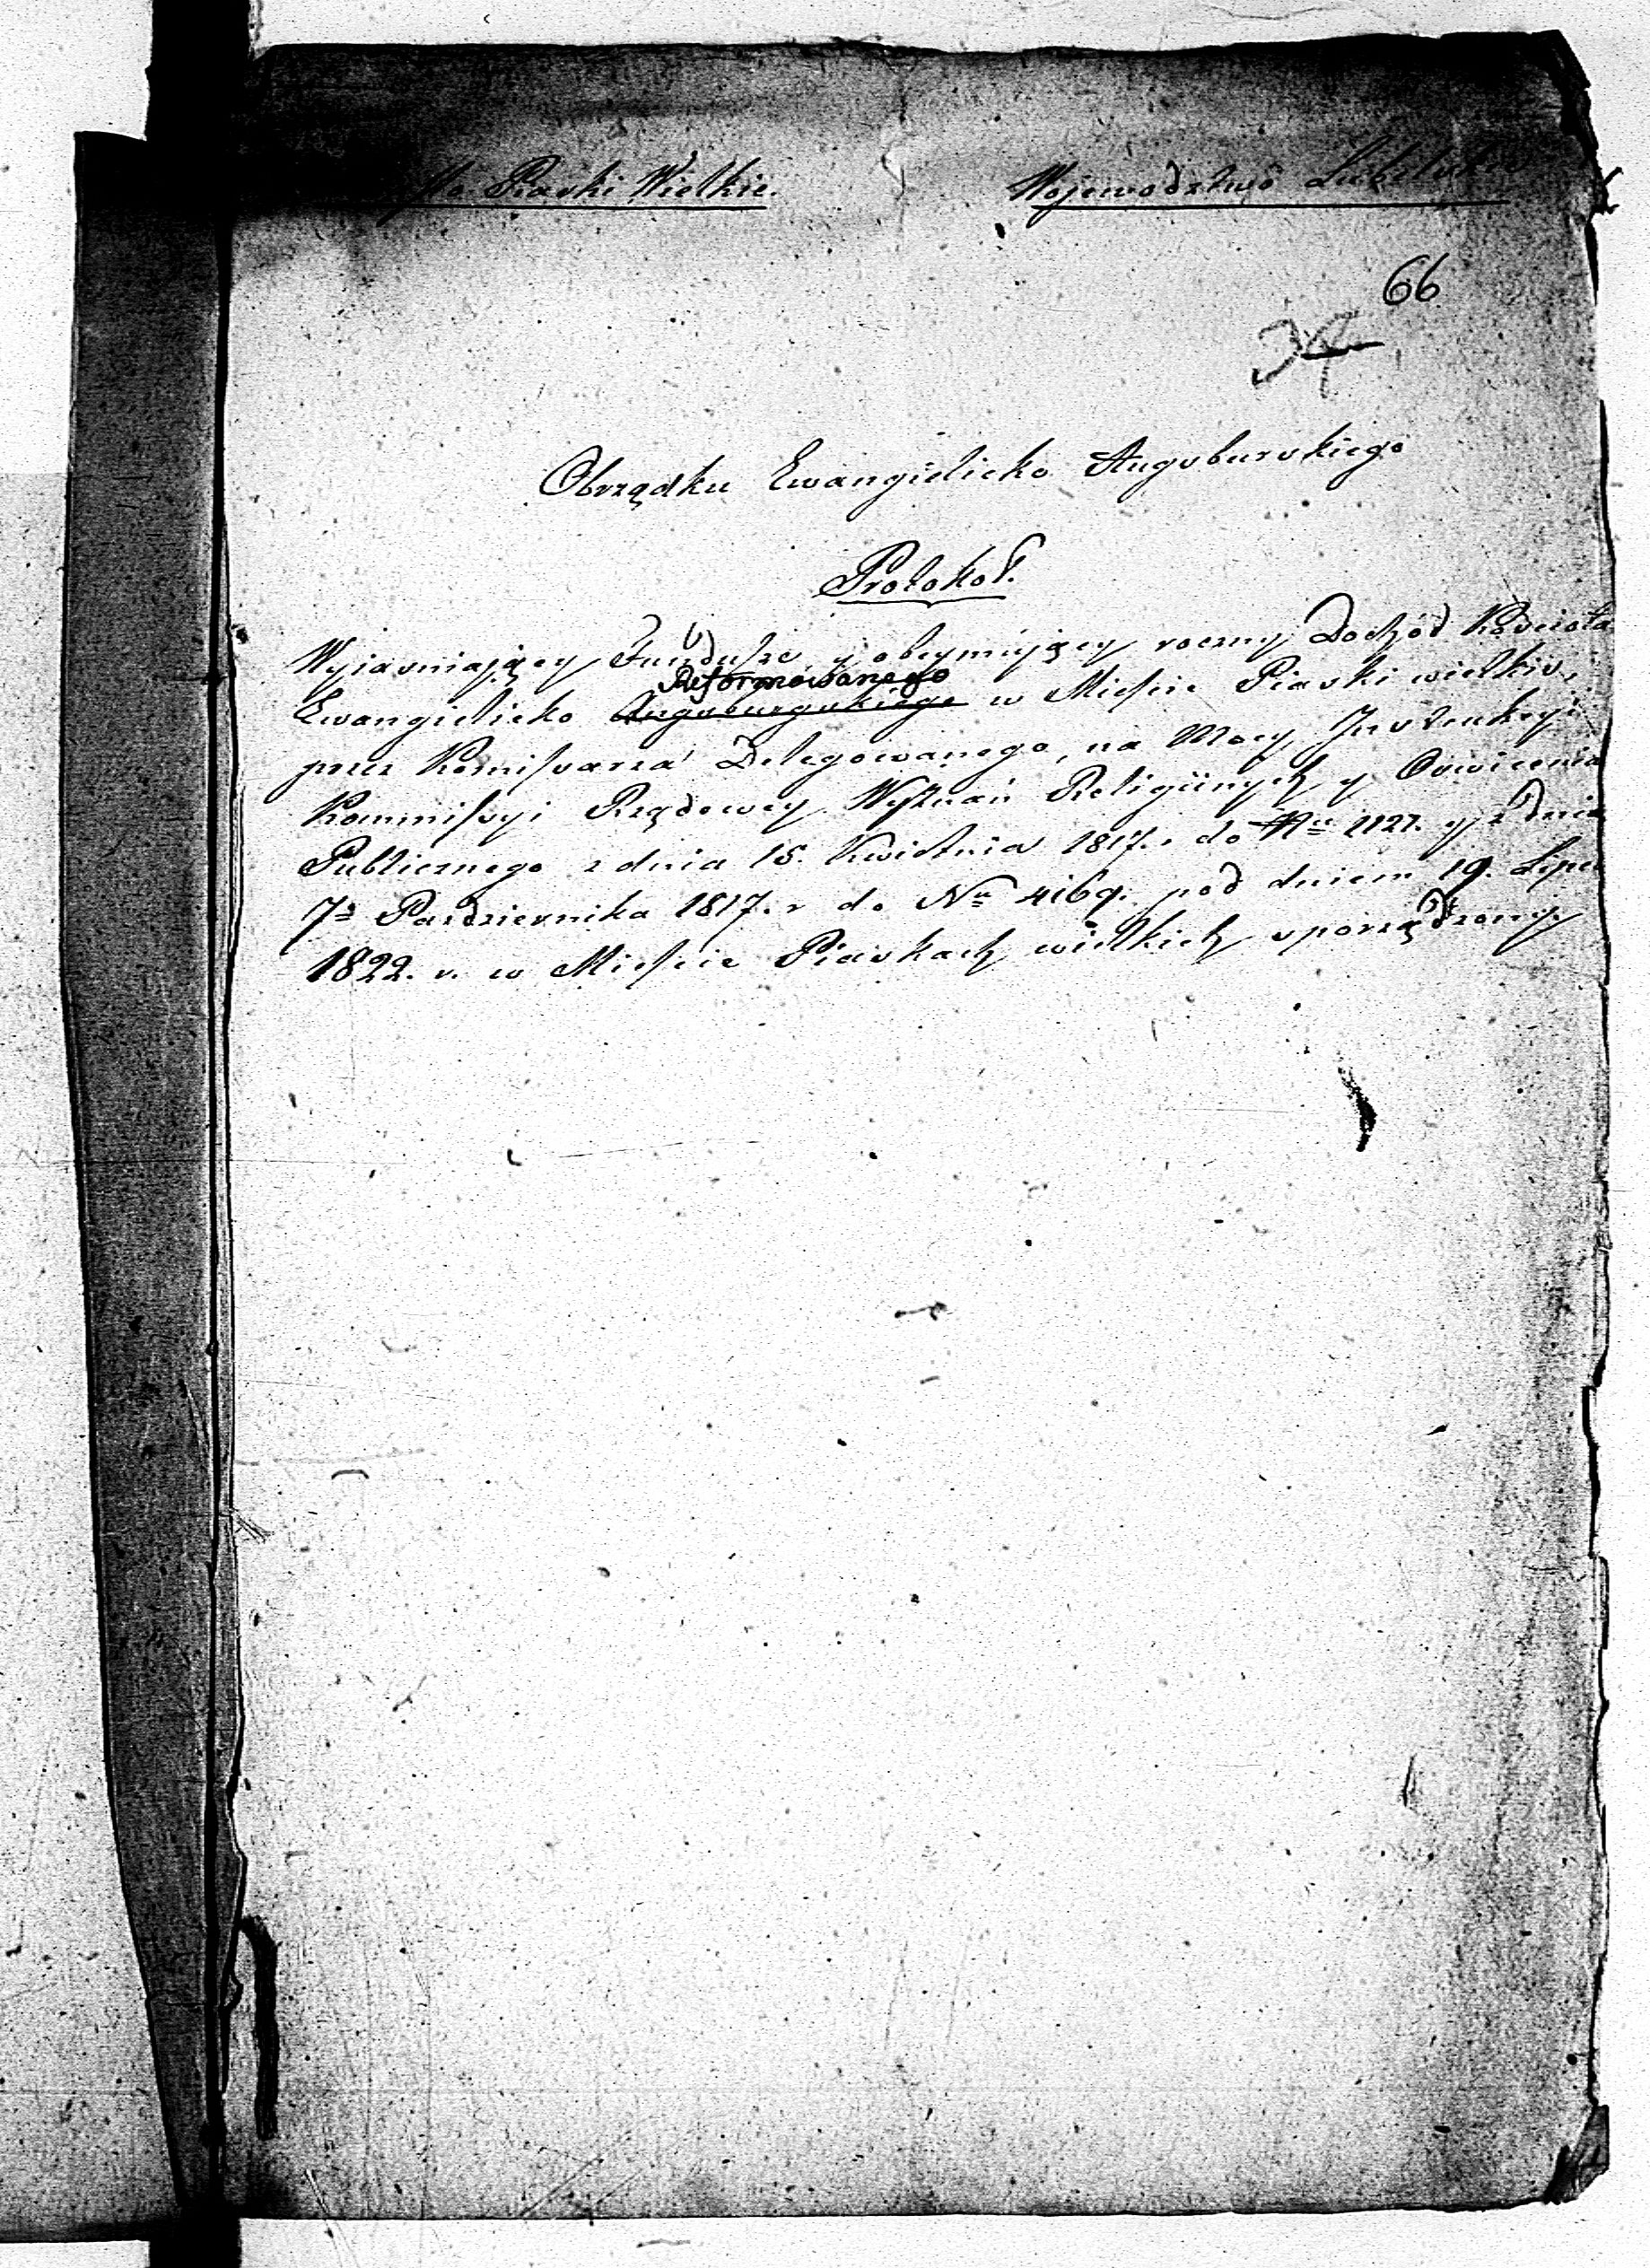 Piaski Wielkie. Województwo Lubelskie
66
Obrządku Ewangielicko Augsburskiego
Protokoł.
Wyiasniaiący Fundusze y obeymuiący roczny Dochód Kościoła
Reformowanego
Ewangielicko Augsburgskiego w Mieście Piaski wielkie,
przez Komissarza Delegowanego, na Mocy Instrukcyi
Kommissyi Rządowey Wyznań Religiinych y Oswiecenia
Publicznego z dnia 15. Kwietnia 1817. r. do Nru 1127. y z dnia
7o Pazdziernika 1817. r do Nru 4169. pod dniem 19. Lipca
1822. r. w Mieście Piaskach wielkich sporządzony.